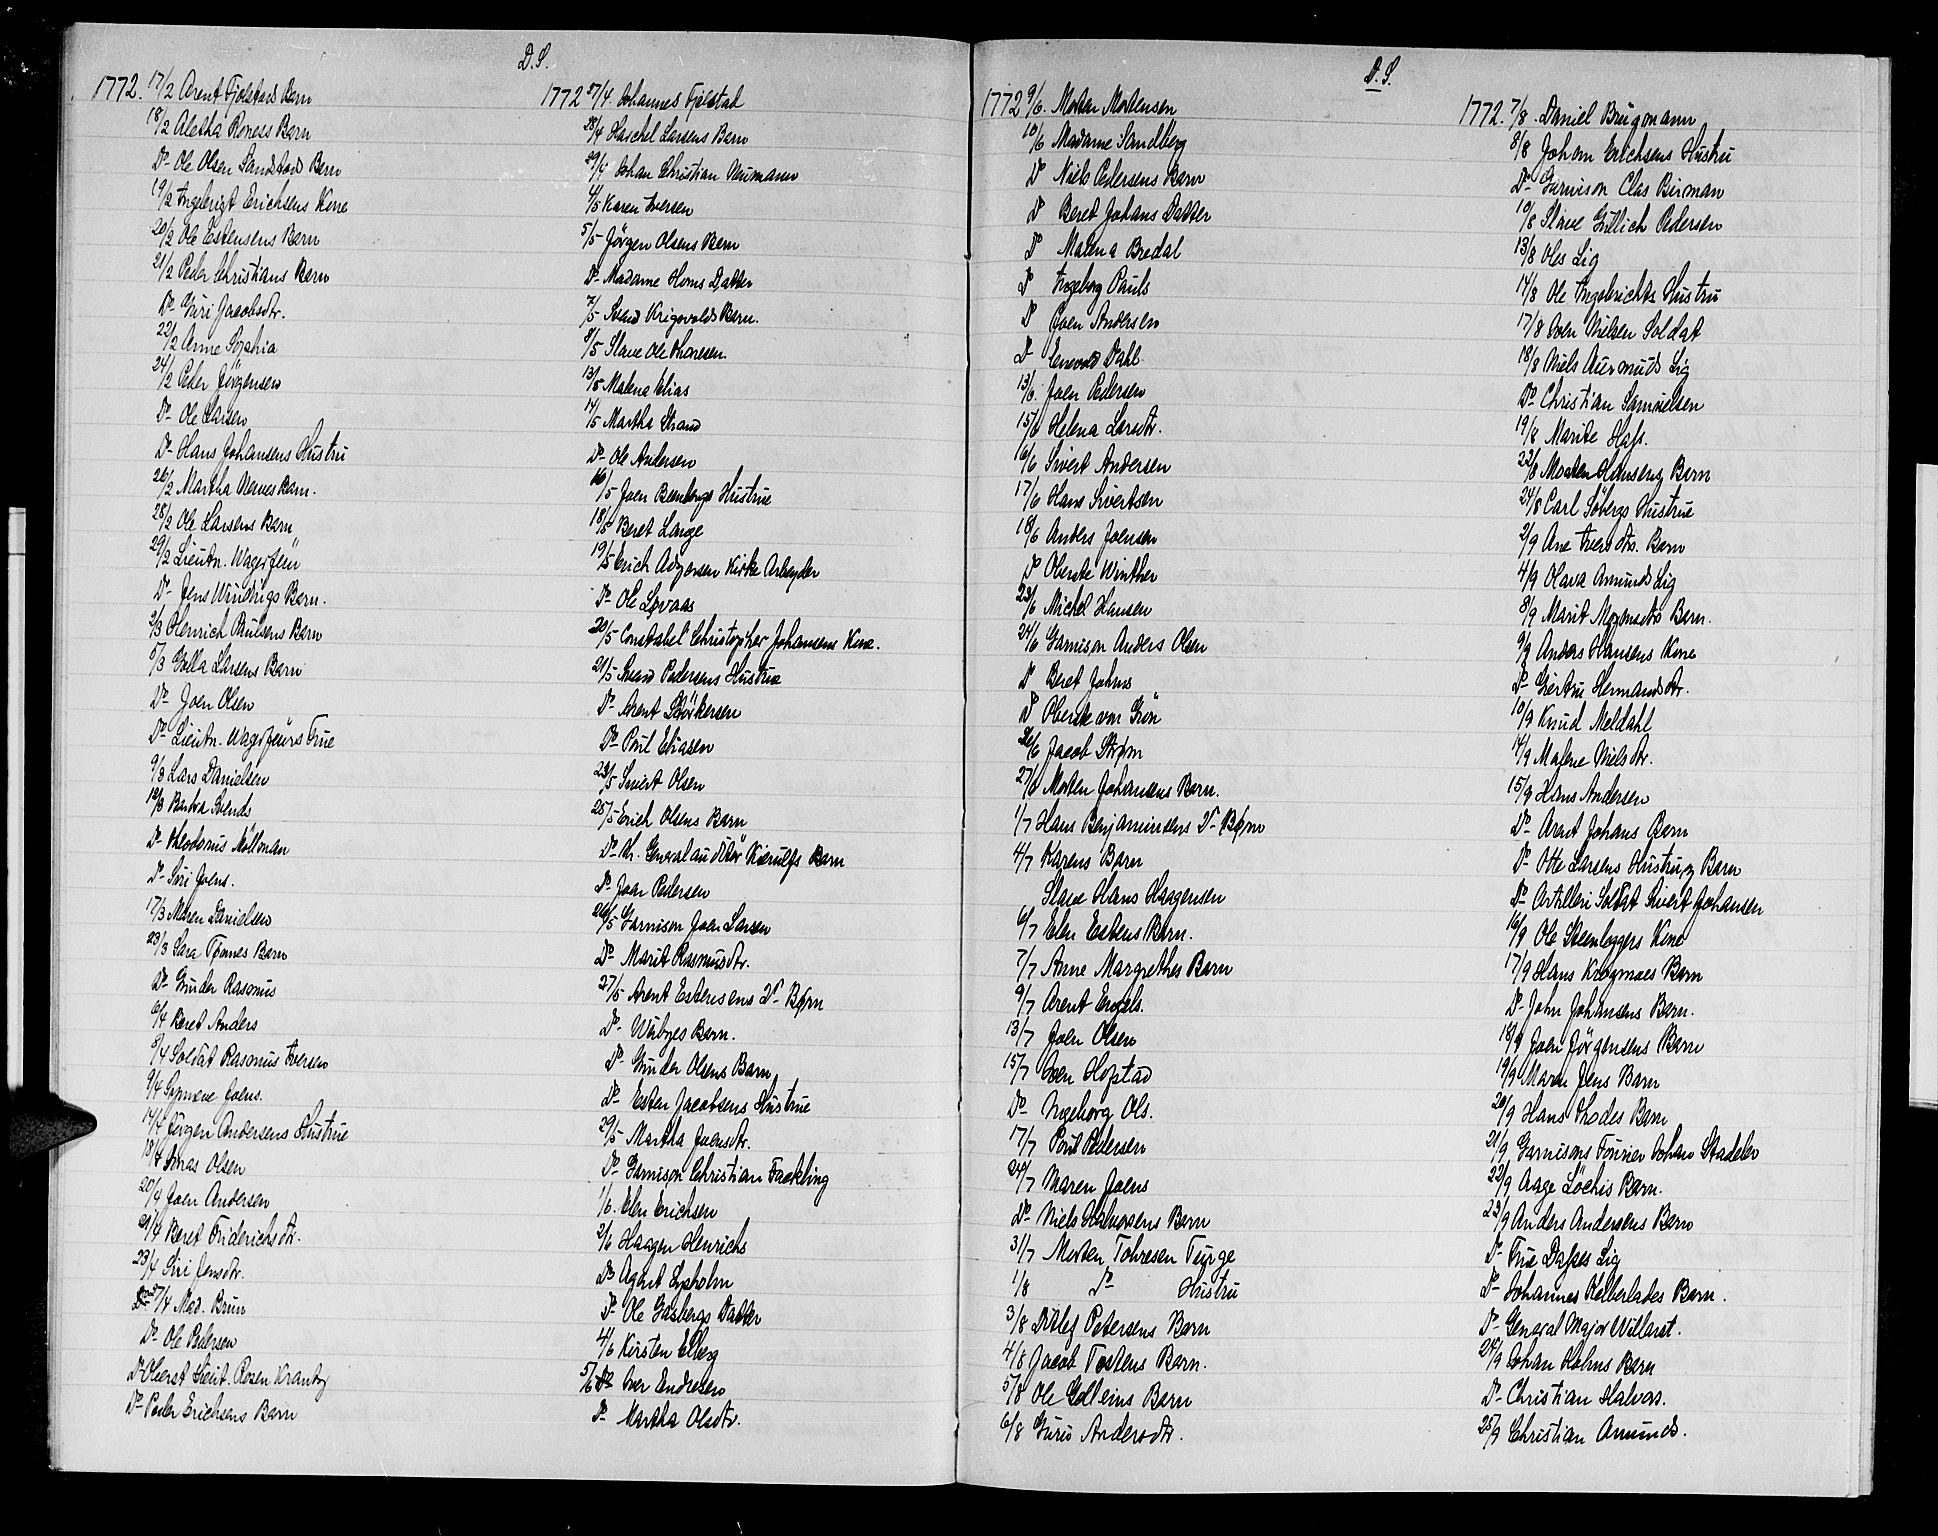 D.S.
1772. 17/2 Arent Fjølstads Barn
18/2 Aletha Roness Barn
Do Ole Olsen Sandstad Barn
19/2 Ingebrigt Erichsens Kone
20/2 Ole Estensens Barn
21/2 Peder Christians Barn
Do Guri Jacobsdtr.
22/2 Anne Sophia
24/2 Peder Jörgensen
Do Ole Larsen
Do Hans Johansens Hustru
26/2 Martha Nernes Barn.
28/2 Ole Larsens Barn
29/2 Lieutn. Wagenfeür
Do Jens Windings Barn.
2/3 Henrich Paulsens Barn
5/3 Golla Larsens Barn
Do Joen Olsen
Do Lieutn. Wagenfeürs Frue
9/3 Lars Danielsen
12/3 Barbra Svends
Do Theodorus Möllman
Do Siri Joens.
17/3 Maren Danielsen
23/3 Sara Tønnes Barn
Do Gunder Rasmus
6/4 Beret Anders
8/4 Soldat Rasmus Iversen
9/4 Synnøve Joens.
14/4 Jörgen Andersens Hustrue
18/4 Jonas Olsen
20/4 Joen Andersen
21/4 Beret Friderichsdtr.
23/4 Siri Jensdtr.
27/4 Mad. Brun
Do Ole Pedersen
Do Oberst Lieut. Rosen Krantz
Do Peder Erichsens Barn
1772 27/4. Johannes Fjølstad
28/4 Haschel Larsens Barn
29/4 Johan Christian Neumann
4/5 Karen Iversen
5/5 Jörgen Olsens Barn
Do Madame Horns Datter
7/5 Svend Krigsvolds Barn.
8/5 Slave Ole Thoresen.
13/5 Malena Elias
14/5 Martha Strand
Do Ole Andersen
16/5 Joen Beenbergs Hustrue
18/5 Beret Lange
19/5 Erich Adzersen Kirke Arbeyder
Do Ole Løvaas
20/5 Constabel Christopher Johansens Kone.
21/5 Svend Pedersens Hustrue
Do Arent Störkersen
Do Poul Eliasen
23/5 Sivert Olsen
25/5 Erich Olsens Barn
Do Hr. Generalauditør Kierulfs Barn
Do Joen Pedersen
26/5 Garnison Joen Larsen
Do Marit Rasmusdtr.
27/5 Arent Estensens 2de Børn
Do Wübyes Barn.
Do Gunder Olsens Barn
Do Esten Jacobsens Hustrue
29/5 Martha Joensdtr.
Do Garnison Christian Fackling
1/6. Elen Erichsen
2/6 Haagen Henrichs
Do Agent Lysholm
Do Ole Gasbergs Datter
4/6 Kirsten Elberg
5/6 Iver Endresen
Do Martha Olsdtr.
D.S.
1772 9/6. Morten Mortensen
10/6 Madame Sandberg
Do Niels Pedersens Barn
Do Beret Johans Datter
Do Malena Bredal
Do Ingeborg Pauls
Do Joen Andersen
Do Enevold Dahl
13/6. Joen Pedersen
15/6 Helena Larsdtr.
16/6 Sivert Andersen
17/6 Hans Sivertsen
18/6 Anders Joensen
Do Oberste Winther
23/6 Michel Hansen
24/6 Garnison Anders Olsen
Do Beret Johns
Do Oberste von Grön
26/6 Jacob Strøm
27/6 Morten Johansens Barn.
1/7 Hans Benjaminsens 2de Børn
4/7 Karens Barn
Slave Hans Haagensen
6/7 Elen Estens Barn.
7/7 Anne Margrethes Barn
9/7 Arent Engels.
13/7 Joen Olsen
15/7 Iver Hopstad
Do Ingeborg Ols.
17/7 Poul Pedersen
24/7 Maren Joens
Do Niels Halvorsens Barn
31/7 Morten Tohresen Turge
1/8 Do Hustru
3/8 Ditlef Petersens Barn
4/8 Jacob Tostens Barn.
5/8 Ole Golleins Barn
6/8 Guru Andersdtr.
1772. 7/8. Daniel Brügmann
8/8 Johan Erichsens Hustru
Do Garnison Clas Birman
10/8 Slave Gullich Pedersen
13/8 Oles Lig
14/8 Ole Ingebrichts Hustru
17/8 Iver Nielsen Soldat
18/8 Niels Aunmuds Lig
Do Christian Samuelsen
19/8 Marite Hafs.
22/8 Morten Hansens Barn
24/8 Carl Söbergs Hustrue
2/9 Ane Iversdtr. Barn
4/9 Olava Amunds Lig
8/9 Marit Mogensdtr Barn.
9/9 Anders Hansens Kone
Do Giertru Hermandsdtr.
10/9 Knud Meldahl
14/9 Malene Nielsdtr.
15/9 Hans Andersen
Do Arent Johans Barn
Do Otte Larsens Hustru og Barn
Do Artilleri Soldat Sivert Johansen
16/9 Ole Steenleggers Kone
17/9 Hans Krogmoes Barn
Do John Johansens Barn.
18/9 Joen Jörgensens Barn
19/9 Maren Jens Barn
20/9 Hans Thodes Barn
21/9 Garnisons Fourier Johan Stadeler
22/9 Aage Löchis Barn.
23/9 Anders Andersens Barn
Do Frue Dasses Lig
Do Johannes Kelberlades Barn.
Do General Major Willarst.
24/9 Johan Holms Barn
Do Christian Halvor.
25/9 Christian Amunds.